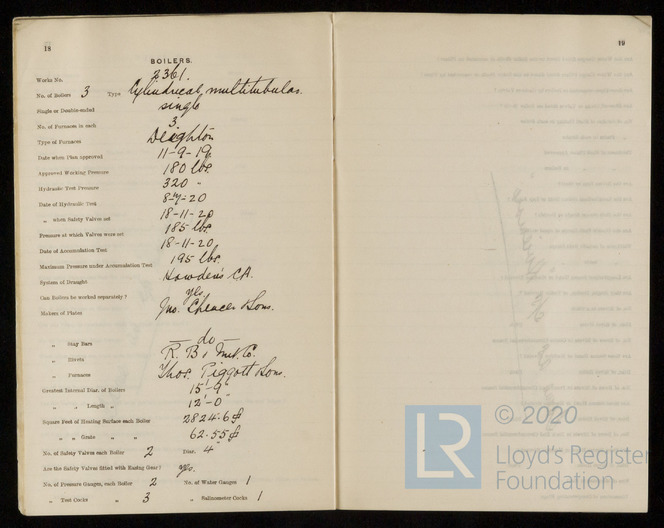 18
BOILERS.
Works No. 2361.
No. of Boilers 3 Type Cylindrical, multitubular.
Single or Double-ended single
No. of Furnaces in each 3.
Type of Furnaces Deighton
Date when Plan approved 11-9-19.
Approved Working Pressure 180 lbs.
Hydraulic Test Pressure 320 "
Date of Hydraulic Test 8-4-20
" when Safety Valves set 18-11-20
Pressure at which Valves were set 185 lbs.
Date of Accumulation Test 18-11-20.
Maximum Pressure under Accumulation Test 195 lbs.
System of Draught Howden's CA.
Can Boilers be worked separately? Yes.
Makers of Plates Jno. Spencer & Sons.
" Stay Bars — do —
" Rivets R. B. & Co.
" Furnaces Thos. Piggott & Sons.
Greatest Internal Diar. of Boilers 15'-9"
" " Length " 12'-0"
Square Feet of Heating Surface each Boiler 2824.6
" " Grate " " 62.55
No. of Safety Valves each Boiler 2 Diar. 4"
Are the Safety Valves fitted with Easing Gear? Yes.
No. of Pressure Gauges, each Boiler 2 No. of Water Gauges 1
" Test Cocks " 3 " Salinometer Cocks 1
19
LR © 2020
Lloyd's Register
Foundation